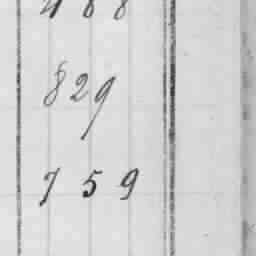 488
829
759